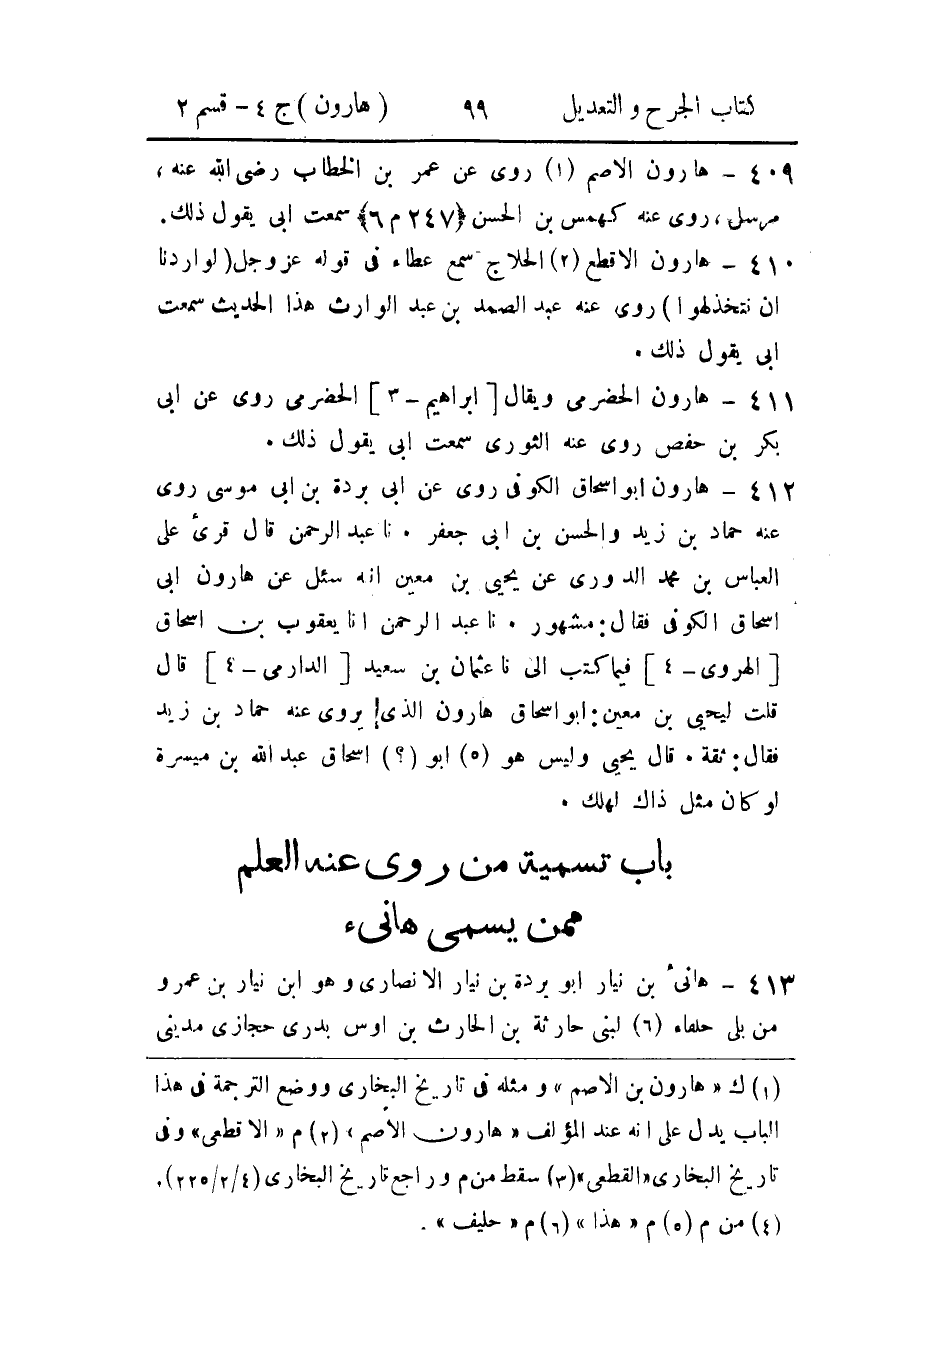 كتاب الجرح والتعديل ٩٩ (هارون) ج ٤ - قسم ٢
٤٠٩ - هارون الاصم (١) روى عن عمر بن الخطاب رضى الله عنه،
مرسل، روى عنه كهمس بن الحسن {٢٤٧ م ٦} سمعت ابى يقول ذلك.
٤١٠ - هارون الاقطع (٢) الحلاج سمع عطاء فى قوله عزوجل (لو اردنا
ان نتخذ لهوا) روى عنه عبد الصمد بن عبد الوارث هذا الحديث سمعت
ابى يقول ذلك.
٤١١ - هارون الحضرمى ويقال [ابراهيم - ٣] الحضرمى روى عن ابى
بكر بن حفص روى عنه الثورى سمعت ابى يقول ذلك.
٤١٢ - هارون ابو اسحاق الكوفى روى عن ابى بردة بن ابى موسى روى
عنه حماد بن زيد والحسن بن ابى جعفر. نا عبد الرحمن قال قرئ على
العباس بن محمد الدورى عن يحيى بن معين انه سئل عن هارون ابى
اسحاق الكوفى فقال: مشهور. نا عبد الرحمن انا يعقوب بن اسحاق
[الهروى - ٤] فيما كتب الى نا عثمان بن سعيد [الدارمى - ٤] قال
قلت ليحيى بن معين: ابو اسحاق هارون الذى يروى عنه حماد بن زيد
فقال: ثقة. قال يحيى وليس هو (٥) ابو (؟) اسحاق عبد الله بن ميسرة
لو كان مثل ذاك لهلك.
باب تسمية من روى عنه العلم
ممن يسمى هانىء
٤١٣ - هانئ بن نيار ابو بردة بن نيار الانصارى وهو ابن نيار بن عمرو
من بلى حلفاء (٦) لبنى حارثة بن الحارث بن اوس بدرى حجازى مدينى
(١) ك «هارون بن الاصم» ومثله فى تاريخ البخارى ووضع الترجمة فى هذا
الباب يدل على انه عند المؤلف «هارون الأصم» (٢) م «الاقطعى» وفى
تاريخ البخارى «القطعى» (٣) سقط من م وراجع تاريخ البخارى (٤/٢/٢٢٥).
(٤) من م (٥) م «هذا» (٦) م «حليف».